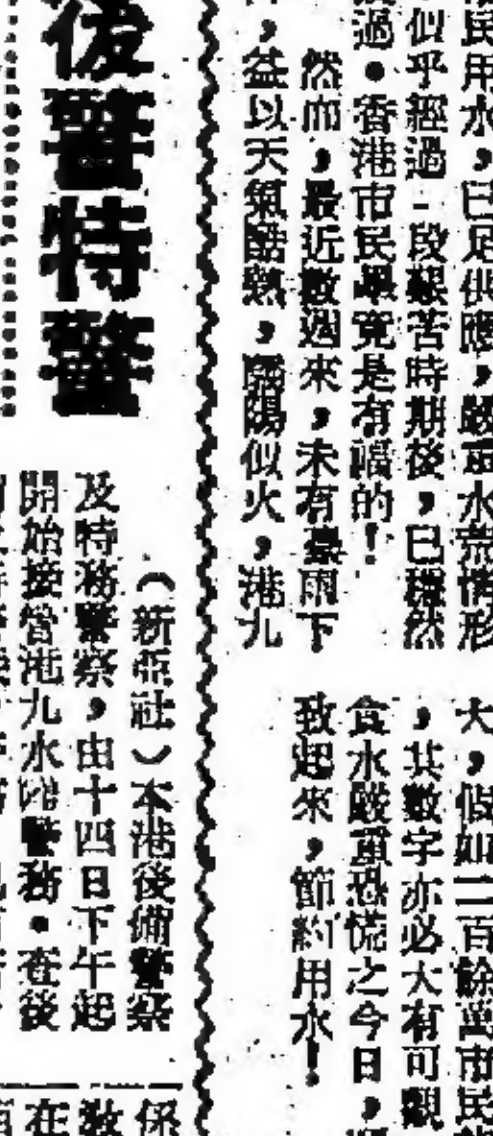 民用水，已足供應，嚴重水荒情形
似乎經過一段艱苦時期後，已穩然
過．香港市民畢竟是有福的！
然而，最近數週來，未有暴雨下
，益以天氣酷熱，驕陽似火，港九
大，假如二百餘萬市民
，其數字亦必大有可觀
食水嚴重恐慌之今日，
致起來，節約用水！
後警特警
（新亞社）本港後備警察
及特務警察，由十四日下午起
開始接管港九水塘警務．查後
係
數
在